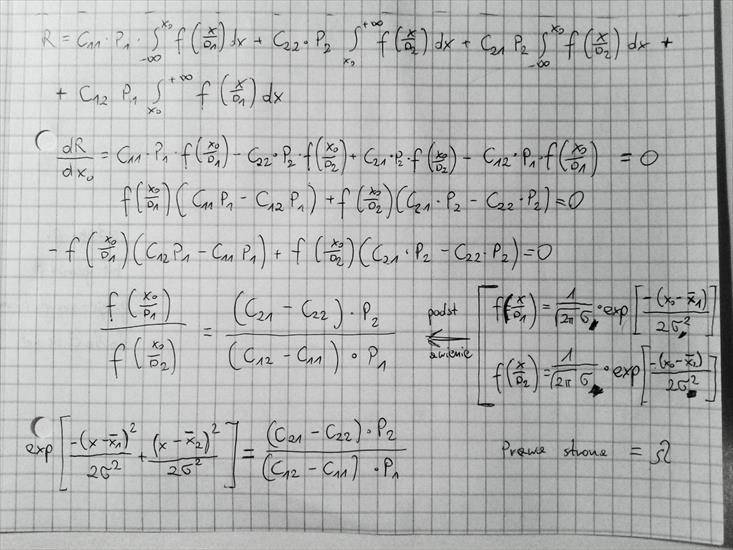 R = C11 · P1 · ∫_{-∞}^{x0} f(x/D1) dx + C22 · P2 ∫_{x0}^{+∞} f(x/D2) dx + C21 P2 ∫_{-∞}^{x0} f(x/D2) dx +
+ C12 P1 ∫_{x0}^{+∞} f(x/D1) dx
dR/dx0 = C11 · P1 · f(x0/D1) - C22 · P2 · f(x0/D2) + C21 · P2 · f(x0/D2) - C12 · P1 · f(x0/D1) = 0
f(x0/D1) (C11 P1 - C12 P1) + f(x0/D2) (C21 · P2 - C22 · P2) = 0
- f(x0/D1) (C12 P1 - C11 P1) + f(x0/D2) (C21 · P2 - C22 · P2) = 0
f(x0/D1) / f(x0/D2) = (C21 - C22) · P2 / (C12 - C11) · P1
podst ← awienie
[ f(x/D1) = 1/√2π σ · exp[-(x0 - x̄1)/2σ²]
f(x/D2) = 1/√2π σ · exp[-(x0 - x̄2)/2σ²]
exp[-(x - x̄1)²/2σ² + (x - x̄2)²/2σ²] = (C21 - C22) · P2 / (C12 - C11) · P1
Prawa strona = Ω